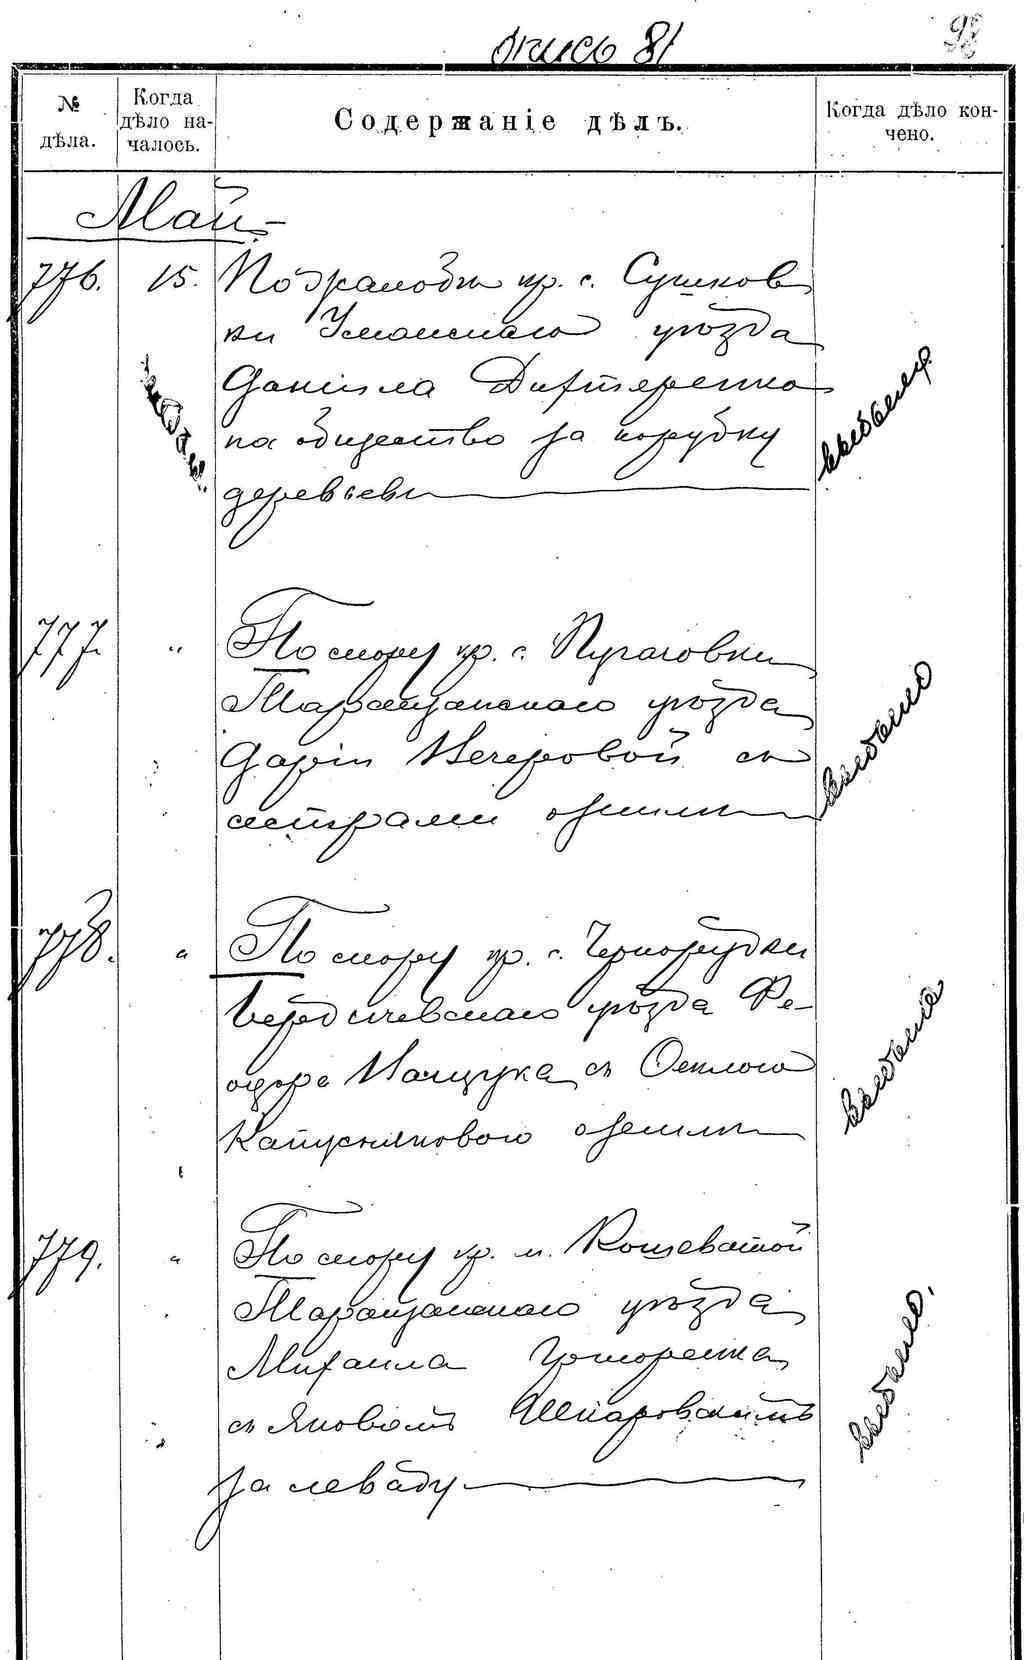 опись 81
98
№ дѣла.
Когда дѣло на-
чалось.
Содержаніе дѣлъ.
Когда дѣло кон-
чено.
Май
776. 15. По жалобѣ кр. с. Сушков
ки Уманскаго уѣзда
Даніила Дихтяренка
на общество за порубку
деревьевъ
выбыло
777. " По спору кр. с. Пугачовки
Таращанскаго уѣзда
Дарьи Нечеровой съ
сестрами о землѣ
выбыло
778. " По спору кр. с. Чернорудки
Бердичевскаго уѣзда Ѳе-
одора Ващука съ
Капусняковою о землѣ
выбыло
779. " По спору кр. м. Кошеватой
Таращанскаго уѣзда
Михаила Григоренка
съ Яковомъ Шкаровскимъ
за леваду
выбыло.